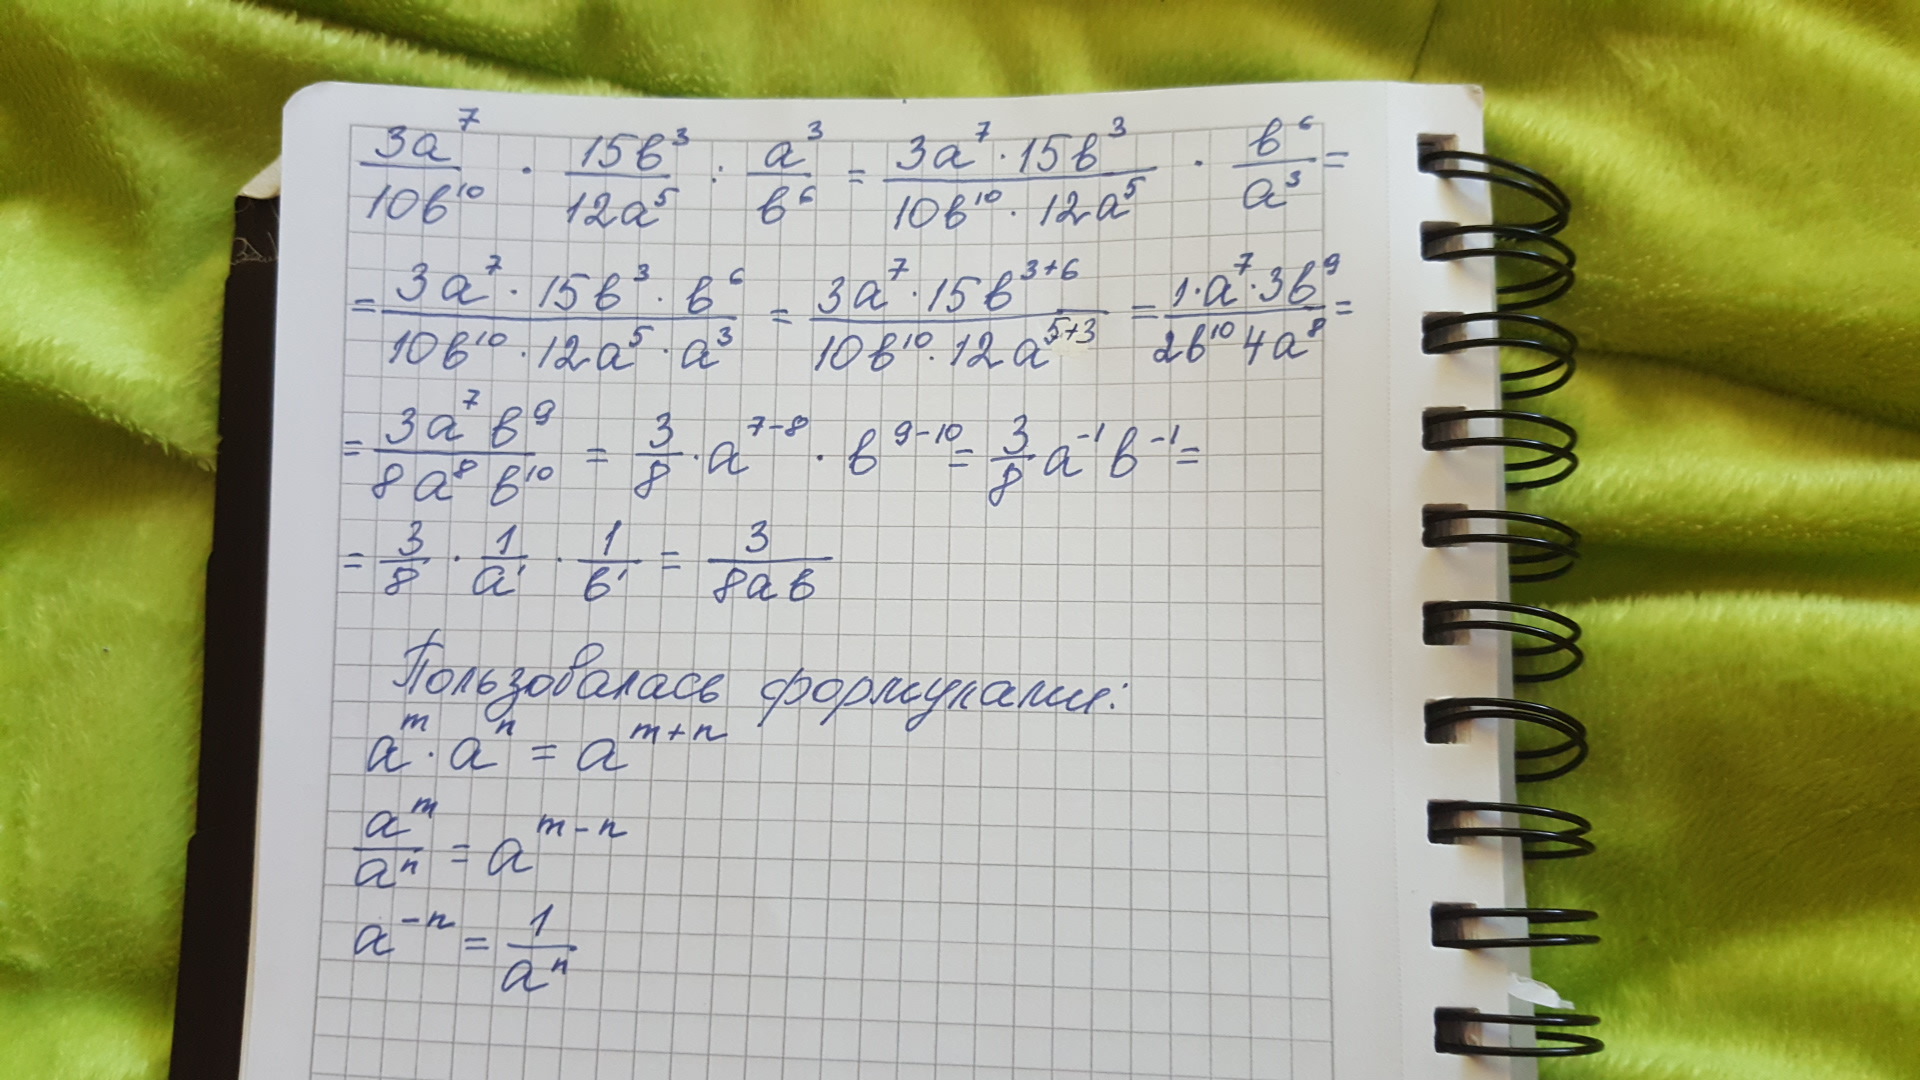 3a⁷/10b¹⁰ · 15b³/12a⁵ : a³/b⁶ = 3a⁷·15b³/10b¹⁰·12a⁵ · b⁶/a³ =
= 3a⁷·15b³·b⁶/10b¹⁰·12a⁵·a³ = 3a⁷·15b³⁺⁶/10b¹⁰·12a⁵⁺³ = 1·a⁷·3b⁹/2b¹⁰4a⁸ =
= 3a⁷b⁹/8a⁸b¹⁰ = 3/8·a⁷⁻⁸·b⁹⁻¹⁰ = 3/8 a⁻¹b⁻¹ =
= 3/8 · 1/a¹ · 1/b¹ = 3/8ab
Пользовалась формулами:
aᵐ·aⁿ = aᵐ⁺ⁿ
aᵐ/aⁿ = aᵐ⁻ⁿ
a⁻ⁿ = 1/aⁿ